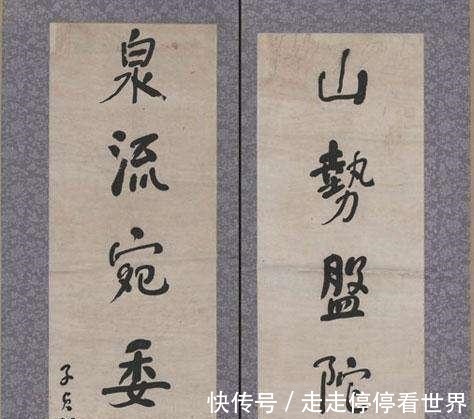 山勢盤陀
泉流宛委
子貞
快传号 / 走走停停看世界